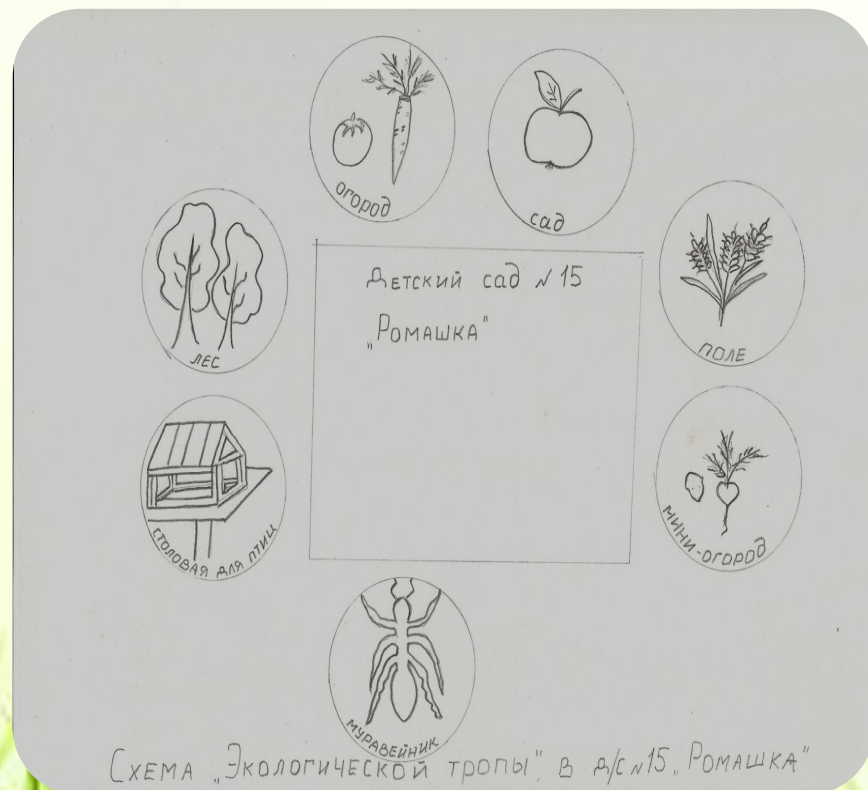 ОГОРОД
сад
ЛЕС
ПОЛЕ
Детский сад №15
„Ромашка"
СТОЛОВАЯ ДЛЯ ПТИЦ
МИНИ-ОГОРОД
МУРАВЕЙНИК
Схема „Экологической тропы" в д/с №15 „Ромашка"